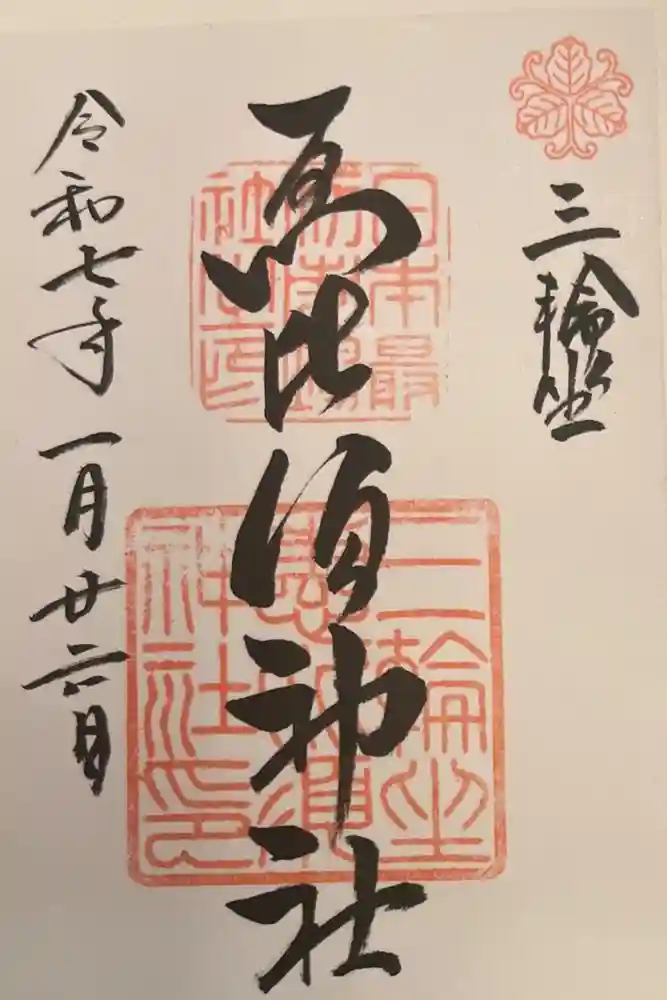 三輪坐
恵比須神社
令和七年一月廿六日
日本最
初市場
社之印
三輪坐
惠比須
神社印